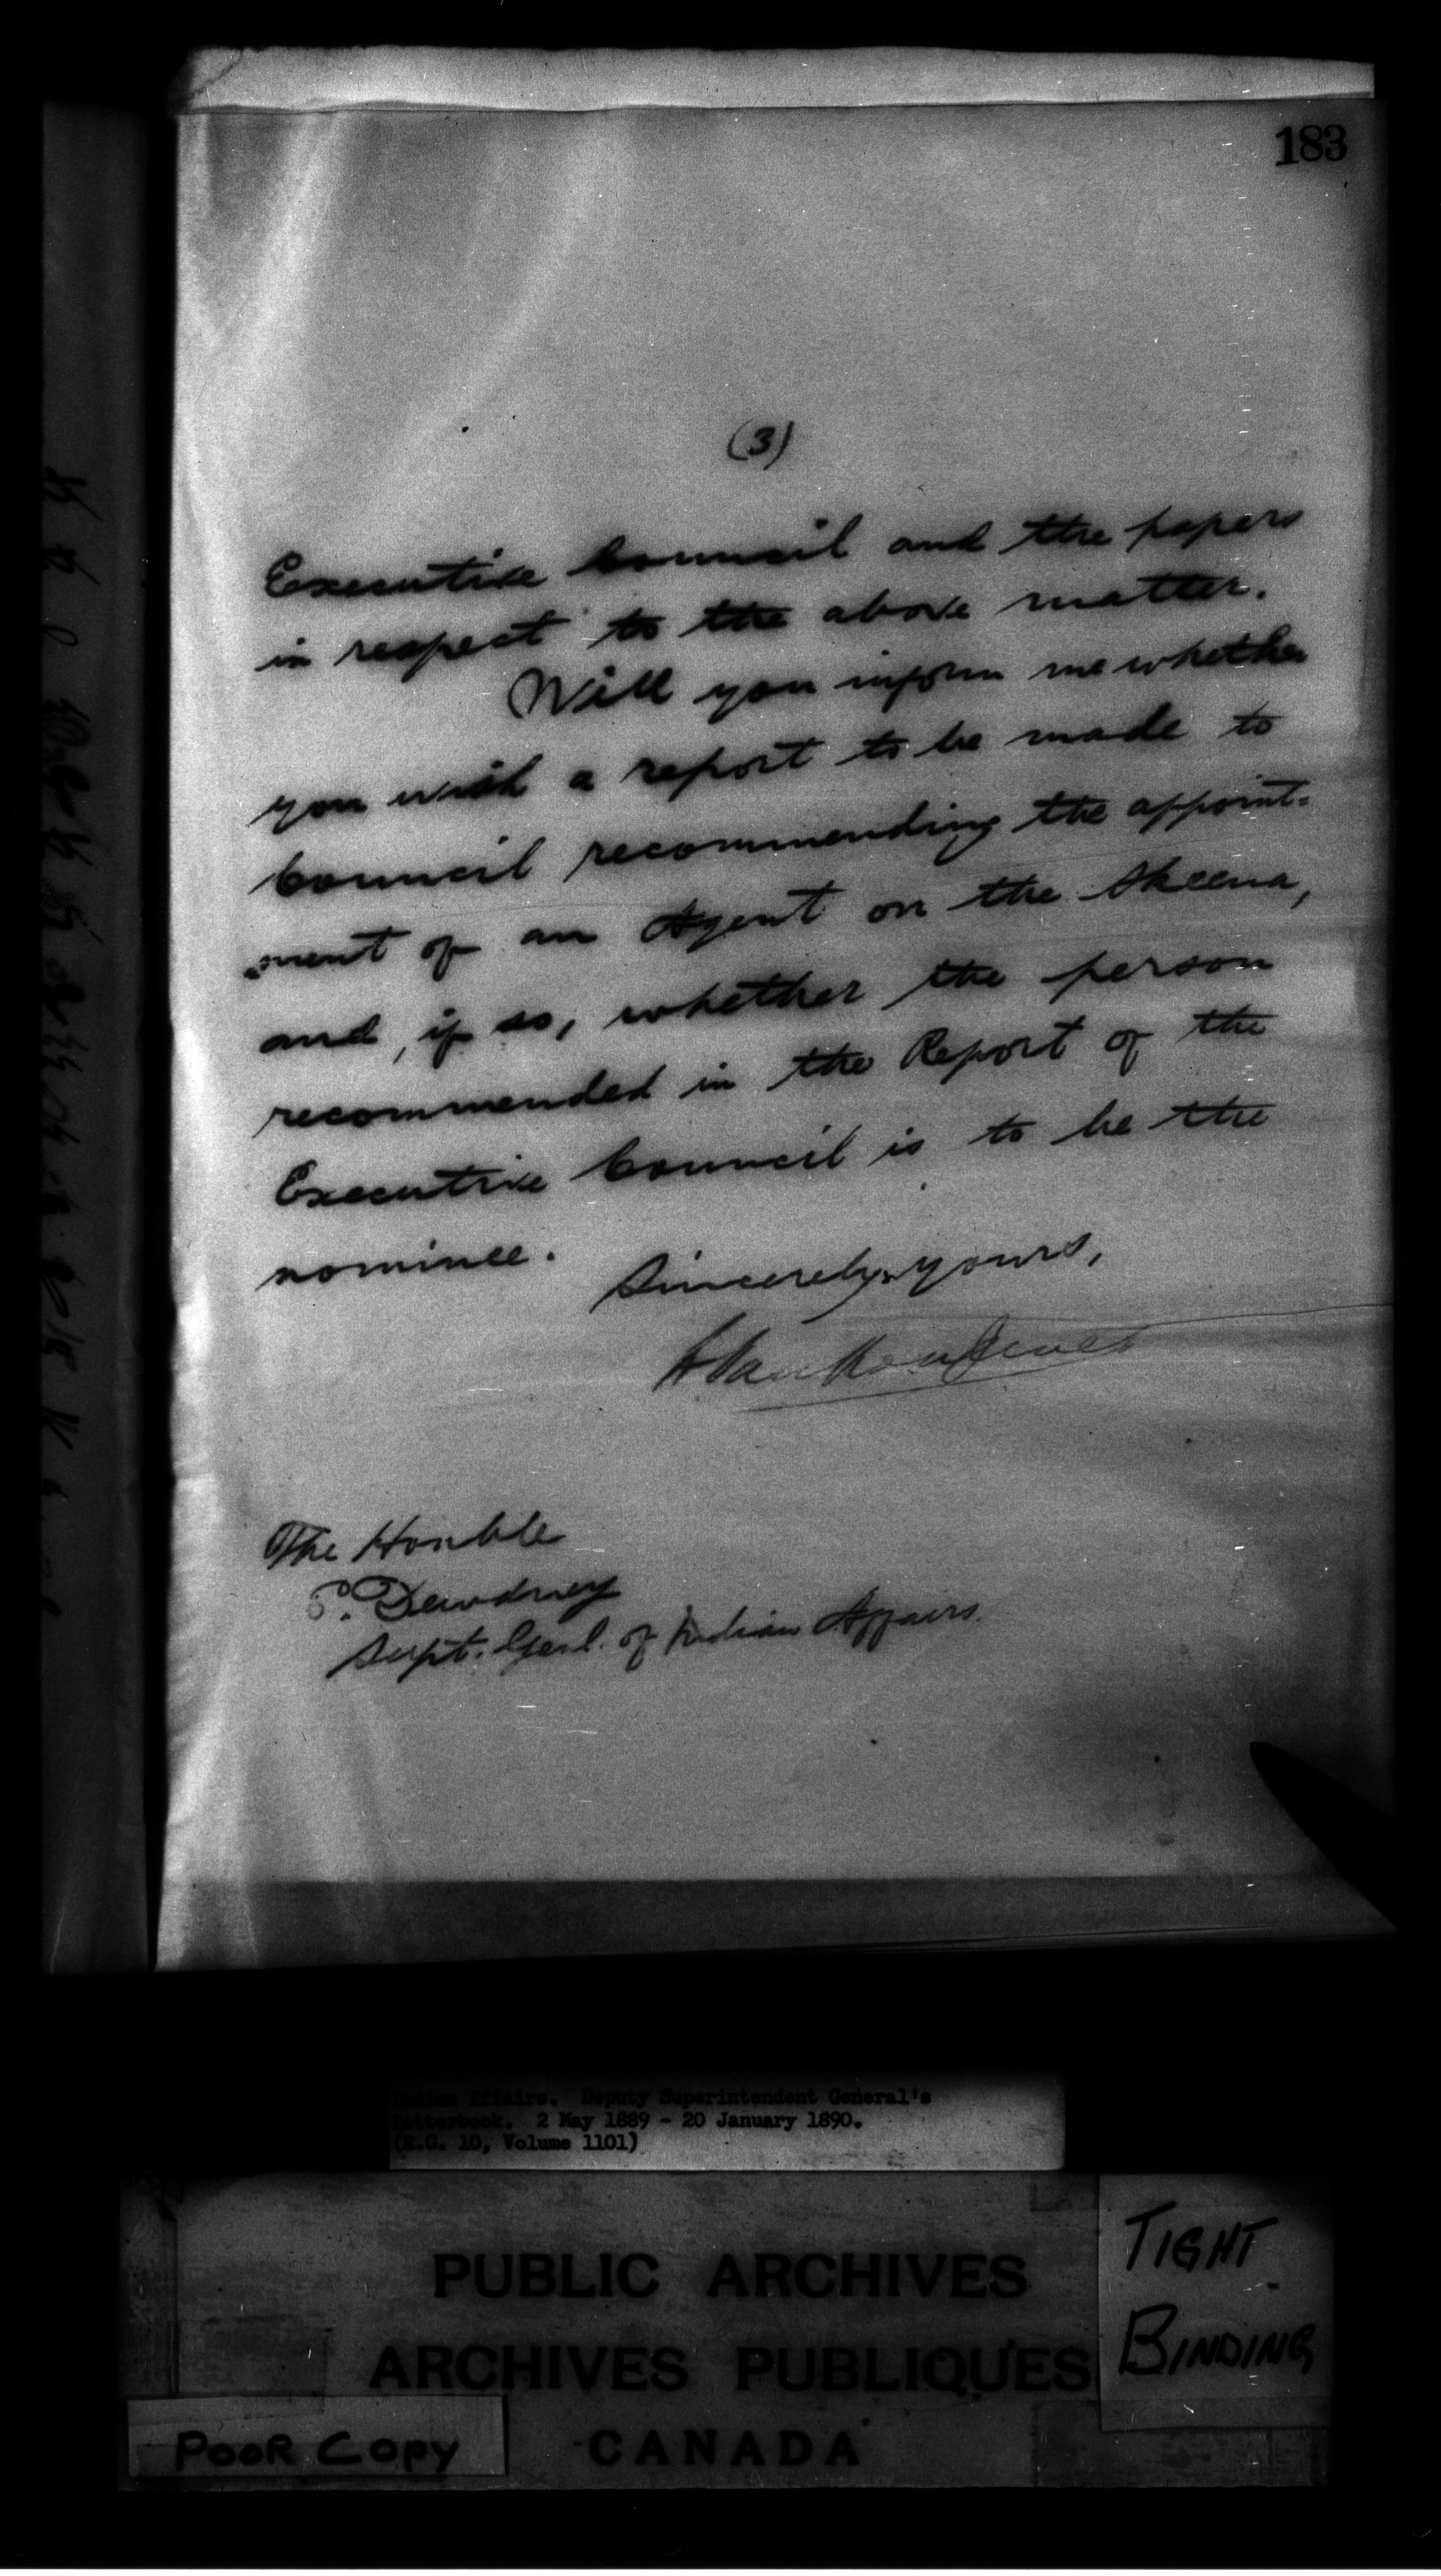 183
(3)
Executive Council and the papers
in respect to the above matter.
Will you inform me whether
you wish a report to be made to
Council recommending the appoint-
-ment of an Agent on the Skeena,
and, if so, whether the person
recommended in the Report of the
Executive Council is to be the
nominee.
Sincerely yours,
The Honble
E. Dewdney
Supt. Genl. of Indian Affairs.
Indian Affairs. Deputy Superintendent General's
Letterbook. 2 May 1889 - 20 January 1890.
(R.G. 10, Volume 1101)
TIGHT
BINDING
PUBLIC ARCHIVES
ARCHIVES PUBLIQUES
CANADA
POOR COPY